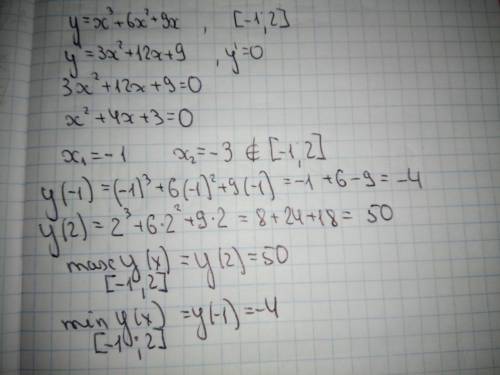 y=x³+6x²+9x , [-1;2]
y'=3x²+12x+9 , y'=0
3x²+12x+9=0
x²+4x+3=0
x₁=-1 x₂=-3 ∉ [-1;2]
y(-1)=(-1)³+6(-1)²+9(-1)=-1+6-9=-4
y(2)=2³+6·2²+9·2=8+24+18=50
max y(x) = y(2)=50
[-1;2]
min y(x) =y(-1)=-4
[-1;2]